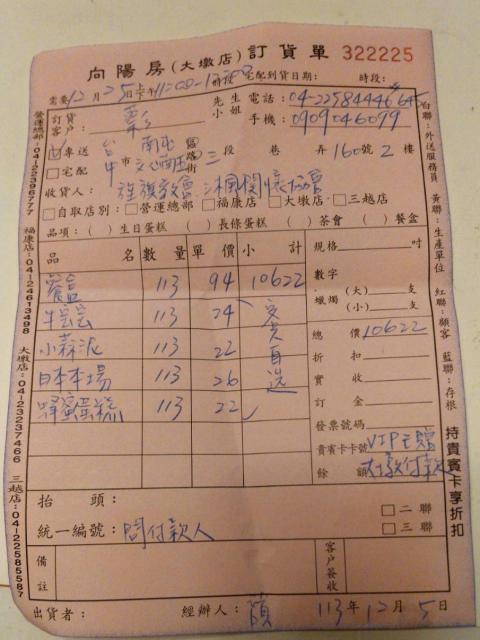 向陽房(大墩店)訂貨單 322225
需要12月25日 11:00-1 時段 宅配到貨日期: 時段:
訂貨客戶: 先生小姐 電話:04-22584446
手機:0909046099
專送 台中市 南屯區 路街 三段 巷 弄 160號 2樓
宅配
收貨人: 協會
自取店別: 營運總部 福康店 大墩店 三越店
品項:( )生日蛋糕 ( )長條蛋糕 ( )茶會 ( )餐盒
品名 數量 單價 小計
餐盒 113 94 10622
113 24
小蒜泥 113 22
日本本場 113 26
蜂蜜蛋糕 113 22
規格 吋
數字
蠟燭 (大) 支
(小) 支
總價 10622
折扣
實收
訂金
發票號碼
貴賓卡卡號 VIP
餘額 付款
抬頭: 二聯
統一編號:問付款人 三聯
備註 客戶簽收
出貨者: 經辦人: 113年12月5日
營運總部:04-22396777 福康店:04-24613498 大墩店:04-23237466 三越店:04-22585587
白聯:外送服務員 黃聯:生產單位 紅聯:顧客 藍聯:存根
持貴賓卡享折扣